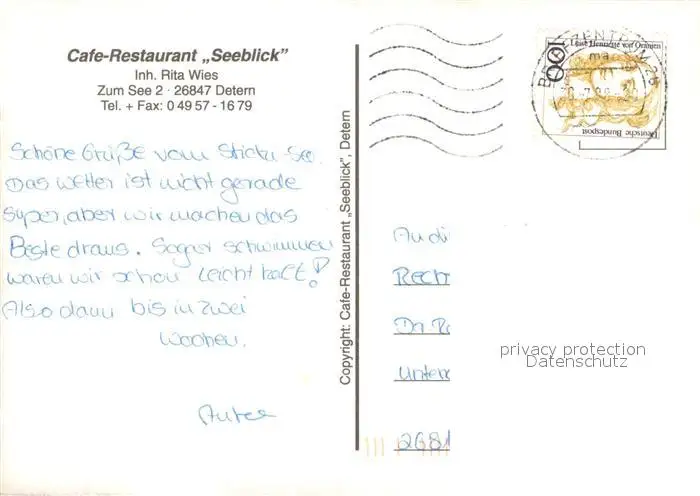 Cafe-Restaurant „Seeblick”
Inh. Rita Wies
Zum See 2 · 26847 Detern
Tel. + Fax: 0 49 57 - 16 79
Schöne Grüße vom See.
Das Wetter ist nicht gerade
super, aber wir machen das
Beste draus. Sogar schwimmen
waren wir schon leicht kalt!
Also dann bis in zwei
Wochen.
Copyright: Cafe-Restaurant „Seeblick”, Detern
100
Luise Henriette von Oranien
Deutsche Bundespost
BRIEFZENTRUM 26
An di
Rech
Da R
Unter
268
privacy protection
Datenschutz